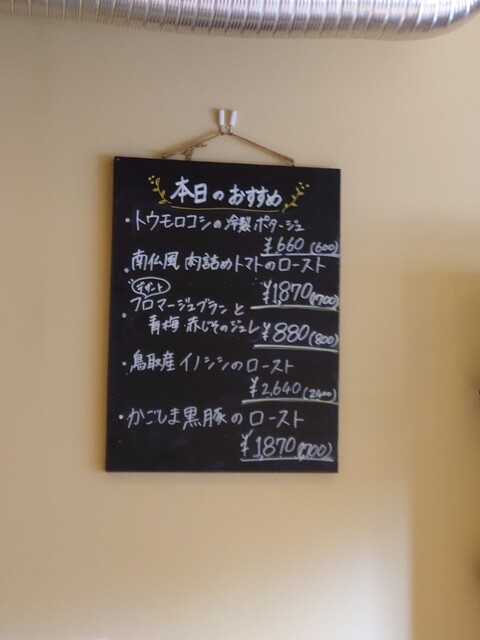 本日のおすすめ
・トウモロコシの冷製ポタージュ
¥660(600)
・南仏風 肉詰めトマトのロースト
¥1,870(1700)
デザート
・フロマージュブランと
青梅 赤じそのジュレ ¥880(800)
・鳥取産イノシシのロースト
¥2,640(2400)
・かごしま黒豚のロースト
¥1,870(1700)